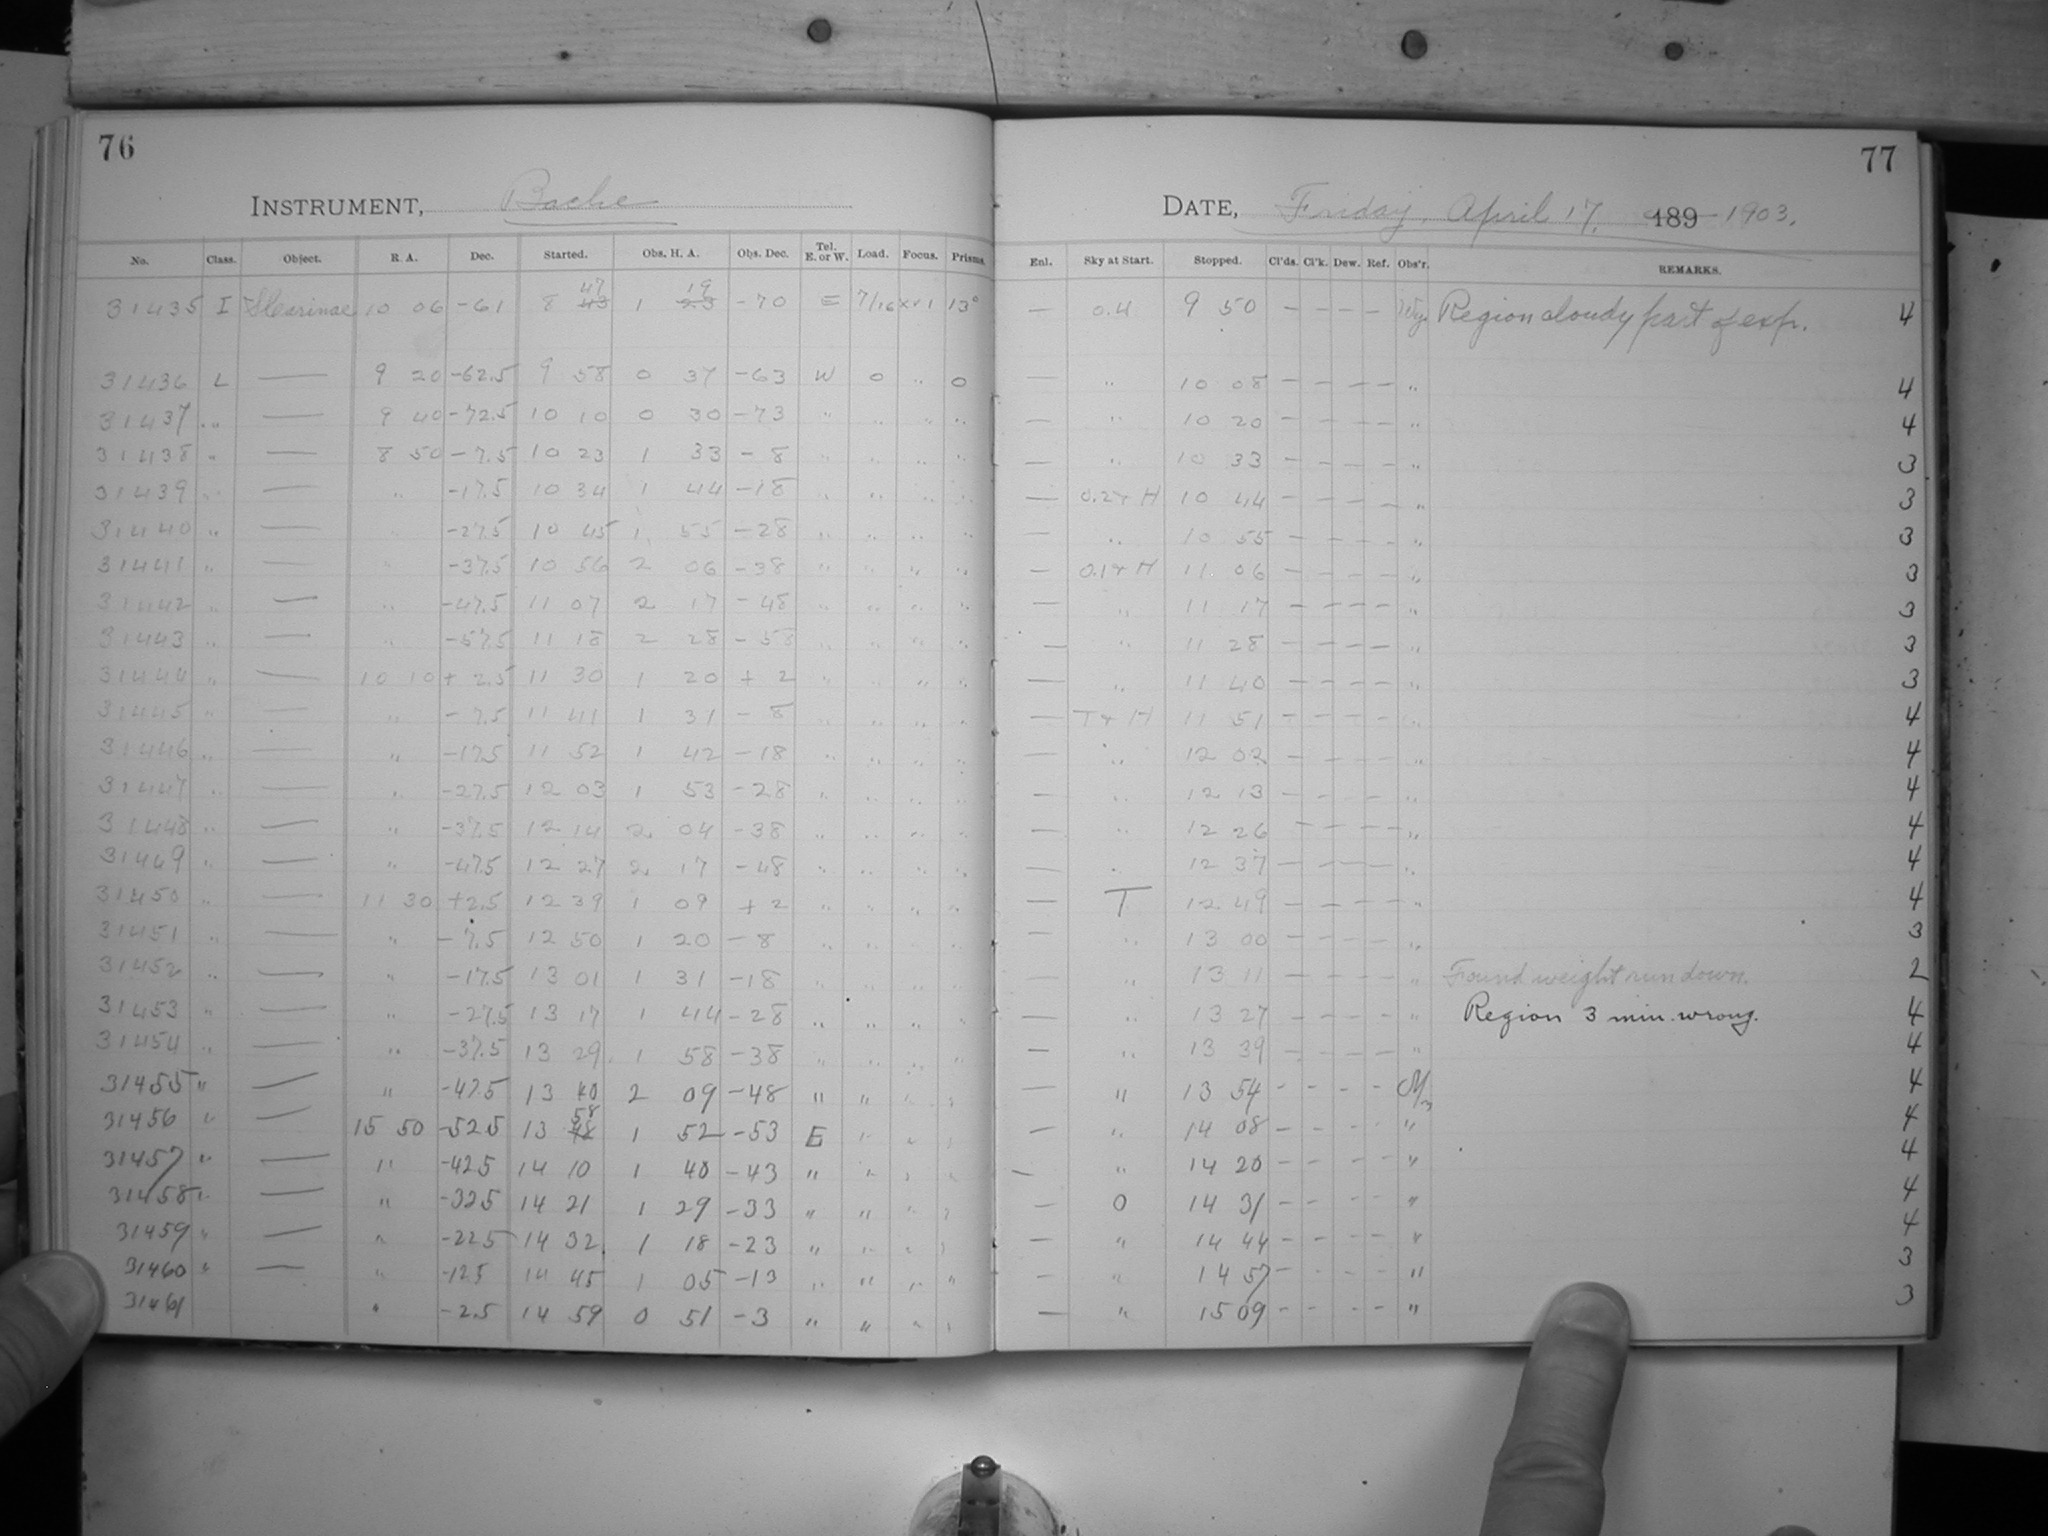 76
INSTRUMENT, Bache
No. Class. Object. R. A. Dec. Started. Obs. H. A. Obs. Dec. Tel. E. or W. Load. Focus. Prisms.
31435 I Carinae 10 06 -61 8 43 47 1 23 19 -70 E 7/16 13°
31436 L — 9 20 -62.5 9 58 0 37 -63 W 0 " 0
31437 " — 9 40 -72.5 10 10 0 30 -73 " " " "
31438 " — 8 50 -7.5 10 23 1 33 -8 " " " "
31439 " — " -17.5 10 34 1 44 -18 " " " "
31440 " — " -27.5 10 45 1 55 -28 " " " "
31441 " — " -37.5 10 56 2 06 -38 " " " "
31442 " — " -47.5 11 07 2 17 -48 " " " "
31443 " — " -57.5 11 18 2 28 -58 " " " "
31444 " — 10 10 +2.5 11 30 1 20 +2 " " " "
31445 " — " -7.5 11 41 1 31 -8 " " " "
31446 " — " -17.5 11 52 1 42 -18 " " " "
31447 " — " -27.5 12 03 1 53 -28 " " " "
31448 " — " -37.5 12 14 2 04 -38 " " " "
31449 " — " -47.5 12 27 2 17 -48 " " " "
31450 " — 11 30 +2.5 12 39 1 09 +2 " " " "
31451 " — " -7.5 12 50 1 20 -8 " " " "
31452 " — " -17.5 13 01 1 31 -18 " " " "
31453 " — " -27.5 13 17 1 44 -28 " " " "
31454 " — " -37.5 13 29 1 58 -38 " " " "
31455 " — " -47.5 13 40 2 09 -48 " " " "
31456 " — 15 50 -52.5 13 48 58 1 52 -53 E " " "
31457 " — " -42.5 14 10 1 40 -43 " " " "
31458 " — " -32.5 14 21 1 29 -33 " " " "
31459 " — " -22.5 14 32 1 18 -23 " " " "
31460 " — " -12.5 14 45 1 05 -13 " " " "
31461 " -2.5 14 59 0 51 -3 " " " "
77
DATE, Friday, April 17, 189 1903.
Enl. Sky at Start. Stopped. Cl'ds. Cl'k. Dew. Ref. Obs'r. REMARKS.
— 0.4 9 50 — — — — Region cloudy part of exp. 4
— " 10 08 — — — — " 4
— " 10 20 — — — — " 4
— " 10 33 — — — — " 3
— 0.2 & H 10 44 — — — — " 3
— " 10 55 — — — — " 3
— 0.1 & H 11 06 — — — — " 3
— " 11 17 — — — — " 3
— " 11 28 — — — — " 3
— " 11 40 — — — — " 3
— T & H 11 51 — — — — " 4
— " 12 02 — — — — " 4
— " 12 13 — — — — " 4
— " 12 26 — — — — " 4
— " 12 37 — — — — " 4
— T 12 49 — — — — " 4
— " 13 00 — — — — " 3
— " 13 11 — — — — " Found weight run down. 2
— " 13 27 — — — — " Region 3 min. wrong. 4
— " 13 39 — — — — " 4
— " 13 54 — — — — 4
— " 14 08 — — — — " 4
— " 14 20 — — — — " 4
— 0 14 31 — — — — " 4
— " 14 44 — — — — " 4
— " 14 57 — — — — " 3
— " 15 09 — — — — " 3